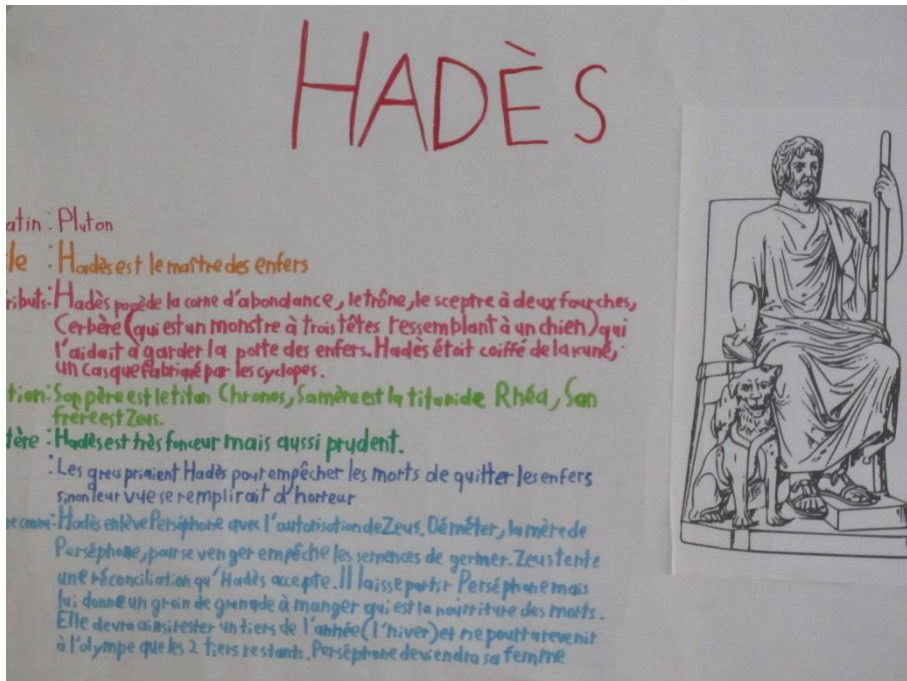 HADÈS
atin : Pluton
le : Hadès est le maître des enfers
ributs : Hadès pocède la corne d'abondance, le trône, le sceptre à deux fourches,
Cerbère (qui est un monstre à trois têtes ressemblant à un chien) qui
l'aidait à garder la porte des enfers. Hadès était coiffé de la kuné,
un casque fabriqué par les cyclopes.
tion : Son père est le titan Chronos, Sa mère est la titanide Rhéa, Son
frère est Zeus.
tère : Hadès est très fonceur mais aussi prudent.
: Les grecs priaient Hadès pour empêcher les morts de quitter les enfers
sinon leur vue se remplirait d'horreur
: Hadès enlève Perséphone avec l'autorisation de Zeus. Déméter, la mère de
Perséphone, pour se venger empêche les semences de germer. Zeus tente
une réconciliation qu'Hadès accepte. Il laisse partir Perséphone mais
lui donne un grain de grenade à manger qui est la nourriture des morts.
Elle devra ainsi rester un tiers de l'année (l'hiver) et ne pourra revenir
à l'olympe que les 2 tiers restants. Perséphone deviendra sa femme